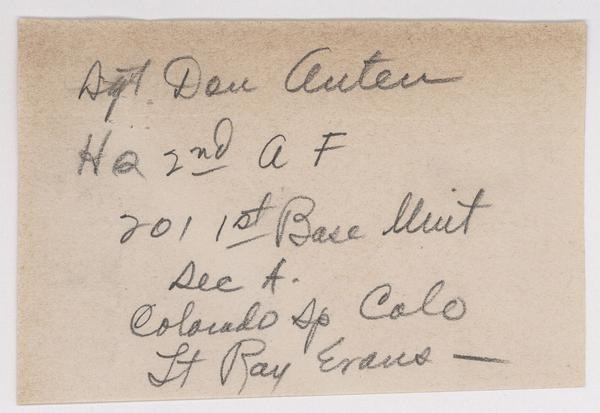 Sgt Don Auten
HQ 2nd A F
201 1st Base Unit
Sec A.
Colorado Sp Colo
Lt Ray Evans —